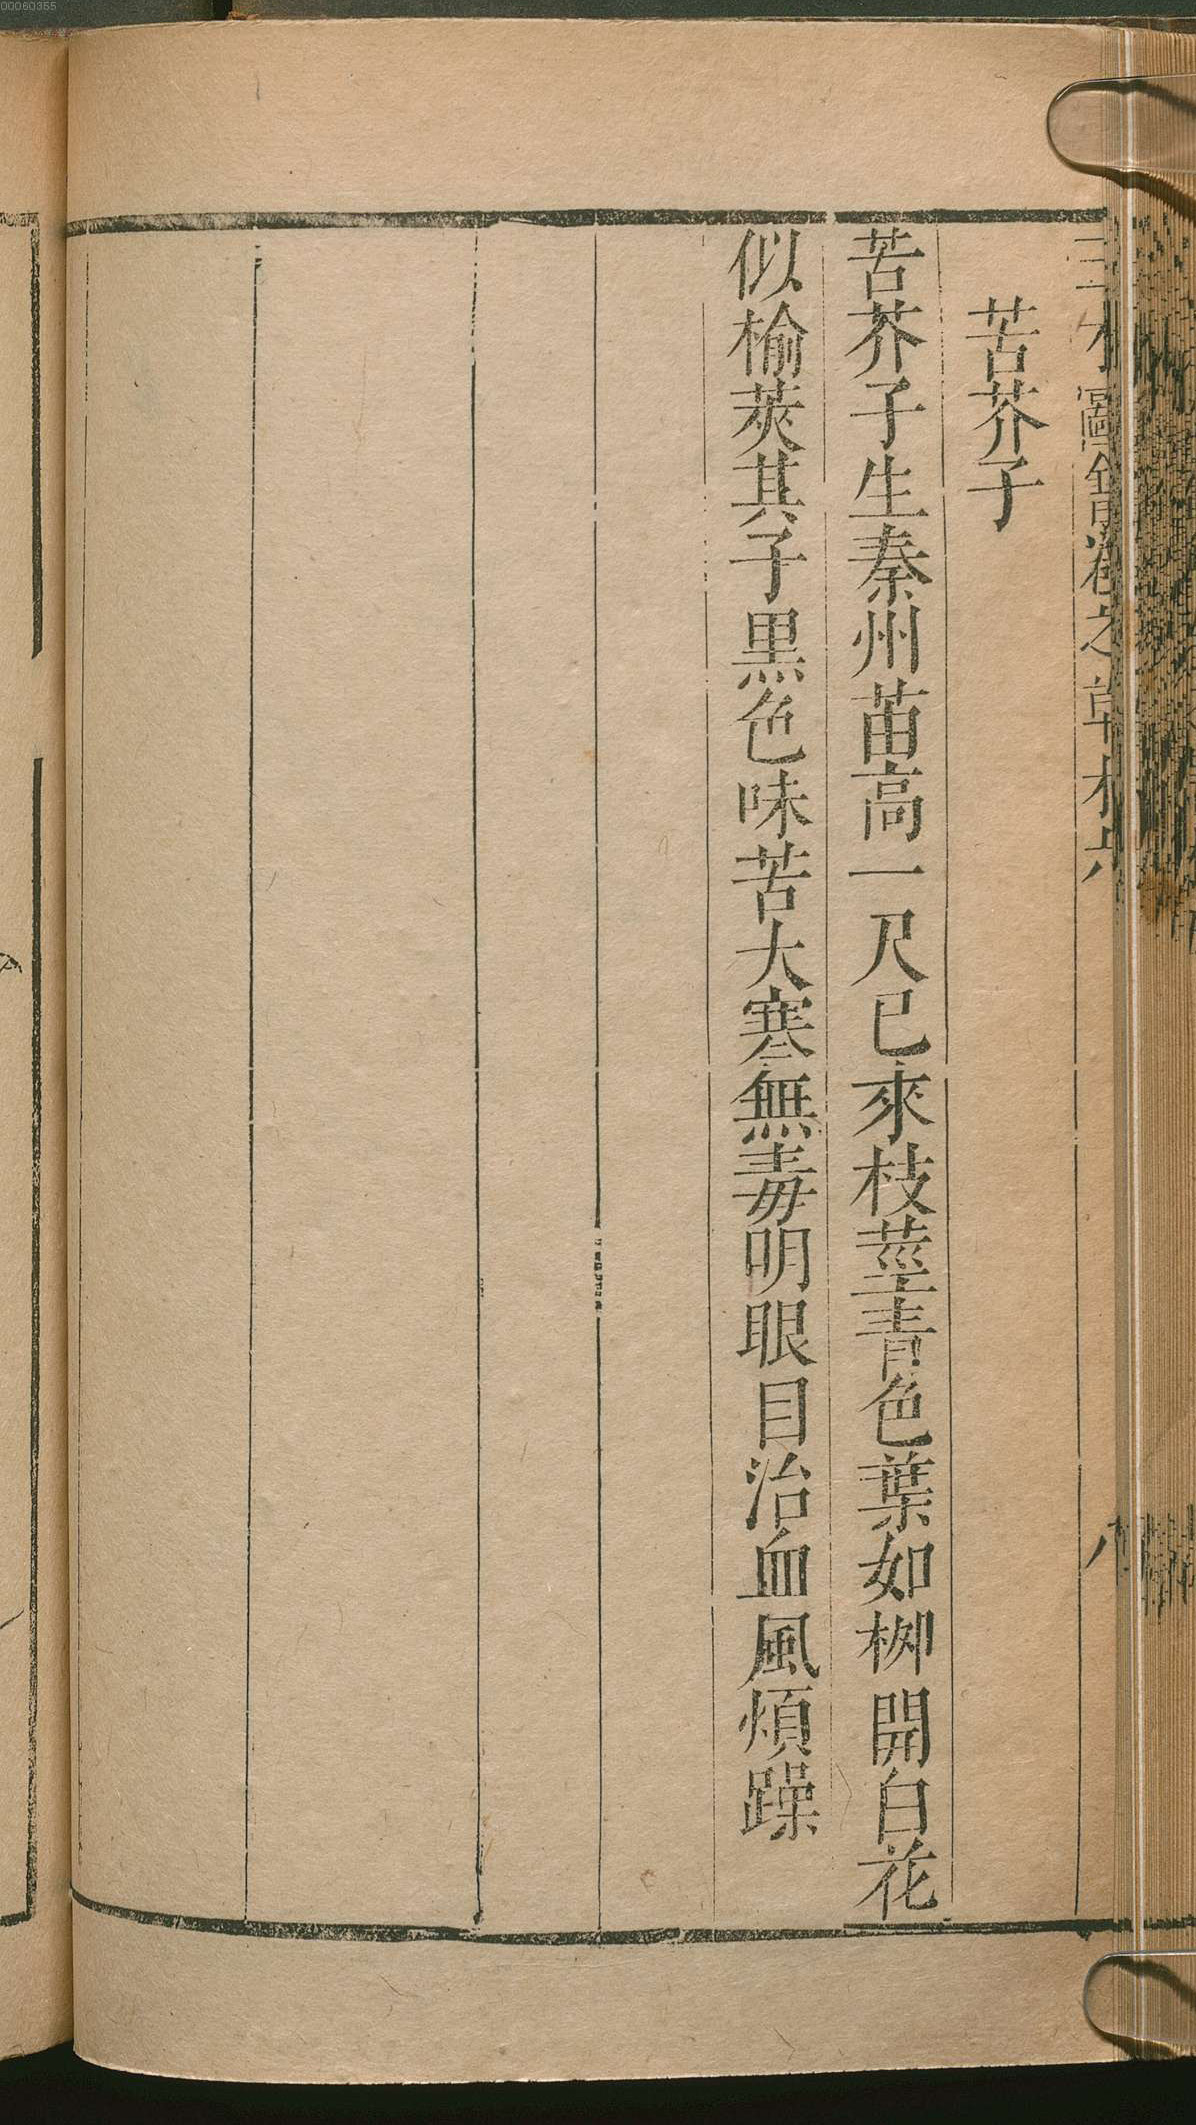 苦芥子
苦芥子生秦州苗高一尺已來枝莖青色葉如桞開白花
似榆莢其子黒色味苦大寒無毒明眼目治血風煩躁
00060355